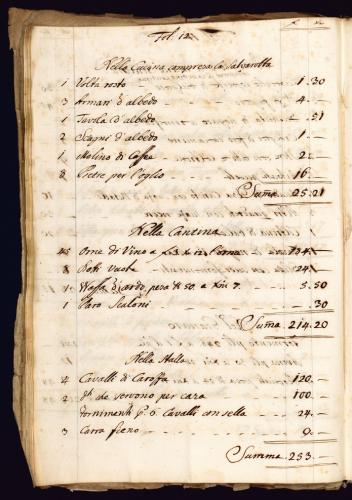 Fol. 12.
Nella Cucina compresa la Salvarotta
1 Volta rosto — 1.30
3 Armari d'albedo — 4.—
1 Tavola d'albedo — —.51
2 Scagni d'albedo — 1.—
1 Molino di Caffè — 2.—
8 Pietre per l'oglio — 16.—
Suma 25.21
Nella Cantina
45 Orne di Vino a l'orna — 134.—
8 Boti vuote — 24.—
1 lardo, pesa 50 a 7. — 5.50
1 Paro Scaloni — —.30
Suma 214.20
Nella Stalla
4 Cavalli di Caroffa — 120.—
2 che servono per casa — 100.—
Fornimenti p. 6 Cavalli con selle — 24.—
3 Carra fieno — 9.—
Summa 253.—